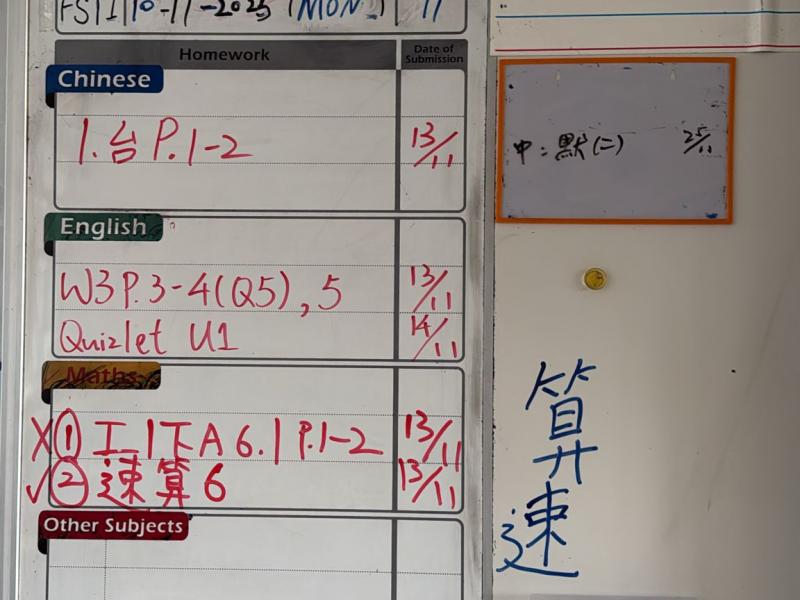 10-11-2025 (MON.) 11
Homework Date of Submission
Chinese
1. 台 P.1-2 13/11
English
W3 P.3-4(Q5), 5 13/11
Quizlet U1 14/11
Maths
X ① 工 1下A 6.1 P.1-2 13/11
✓ ② 速算 6 13/11
Other Subjects
中：默(二) 25/11
算速